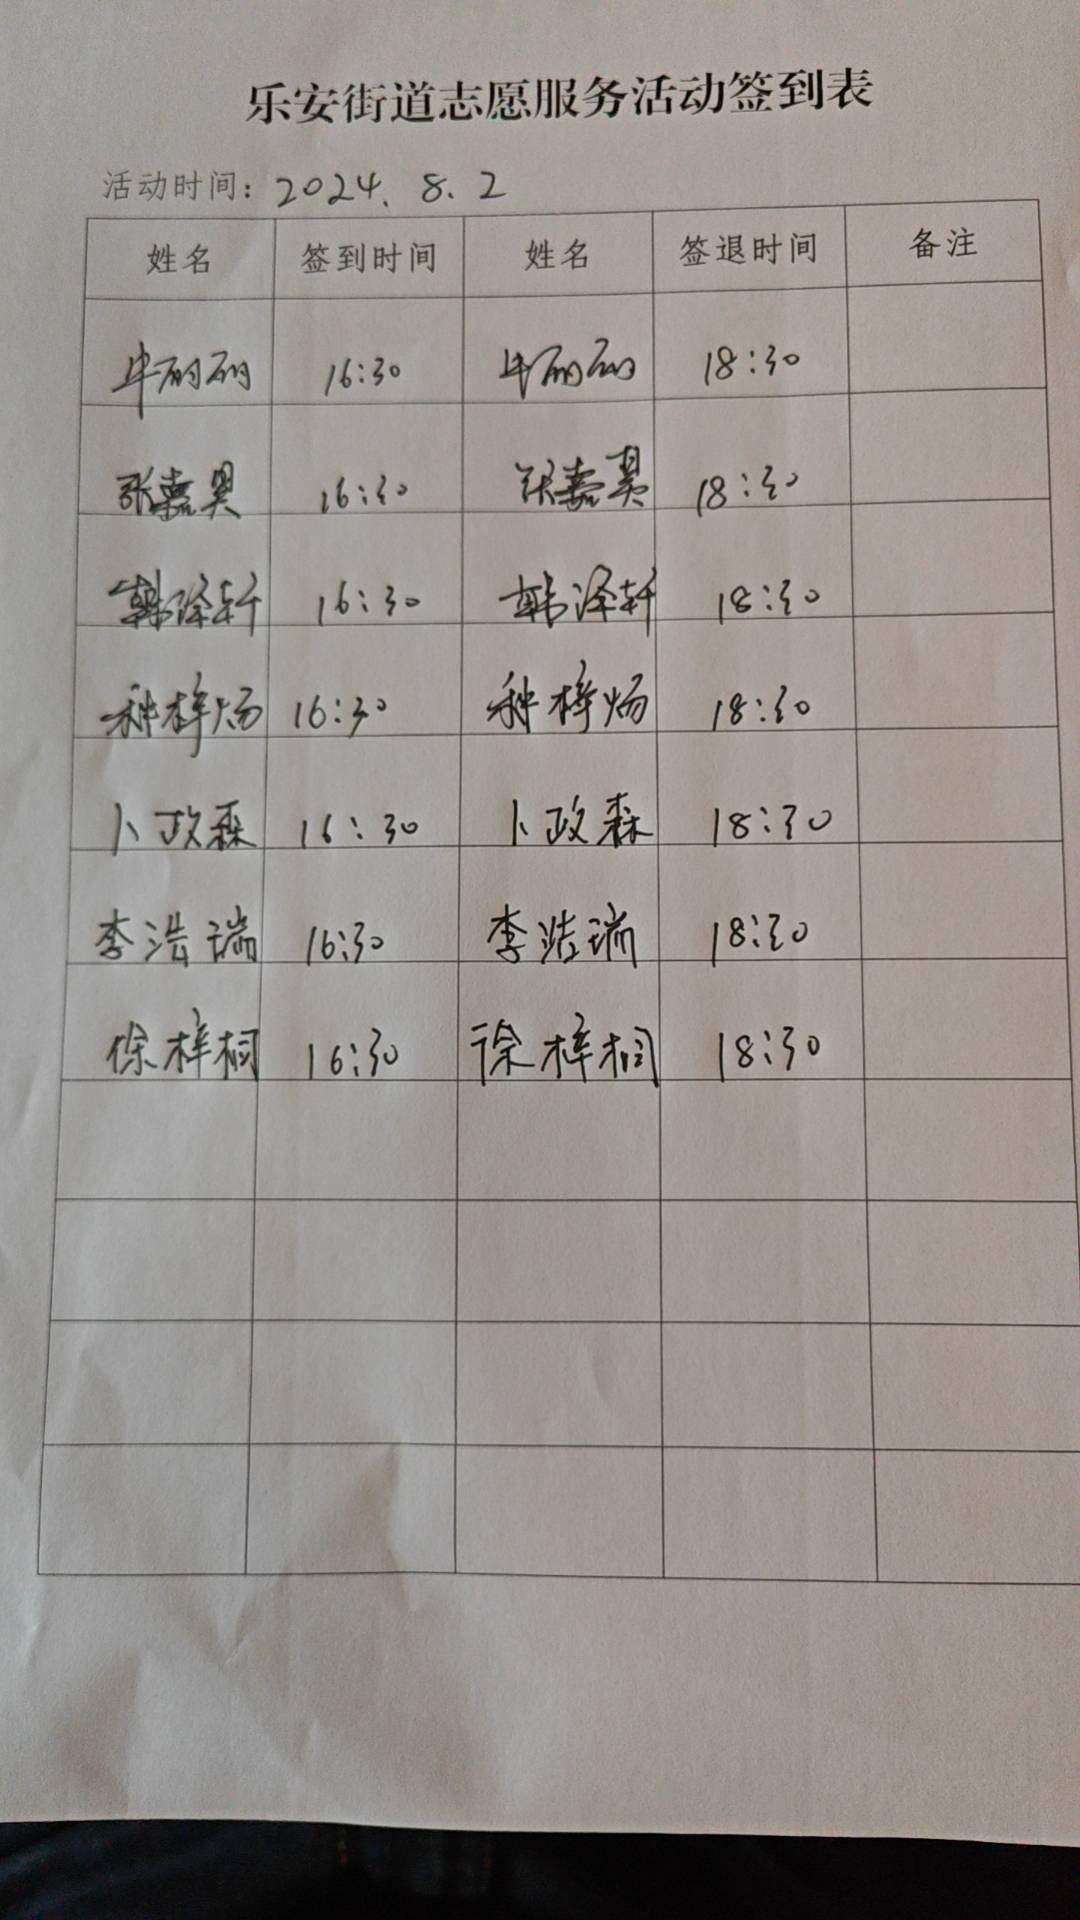 乐安街道志愿服务活动签到表
活动时间: 2024. 8. 2
姓名 签到时间 姓名 签退时间 备注
牛丽丽 16:30 牛丽丽 18:30
张嘉昊 16:30 张嘉昊 18:30
韩泽轩 16:30 韩泽轩 18:30
种梓炀 16:30 种梓炀 18:30
卜政森 16:30 卜政森 18:30
李浩瑞 16:30 李浩瑞 18:30
徐梓桐 16:30 徐梓桐 18:30